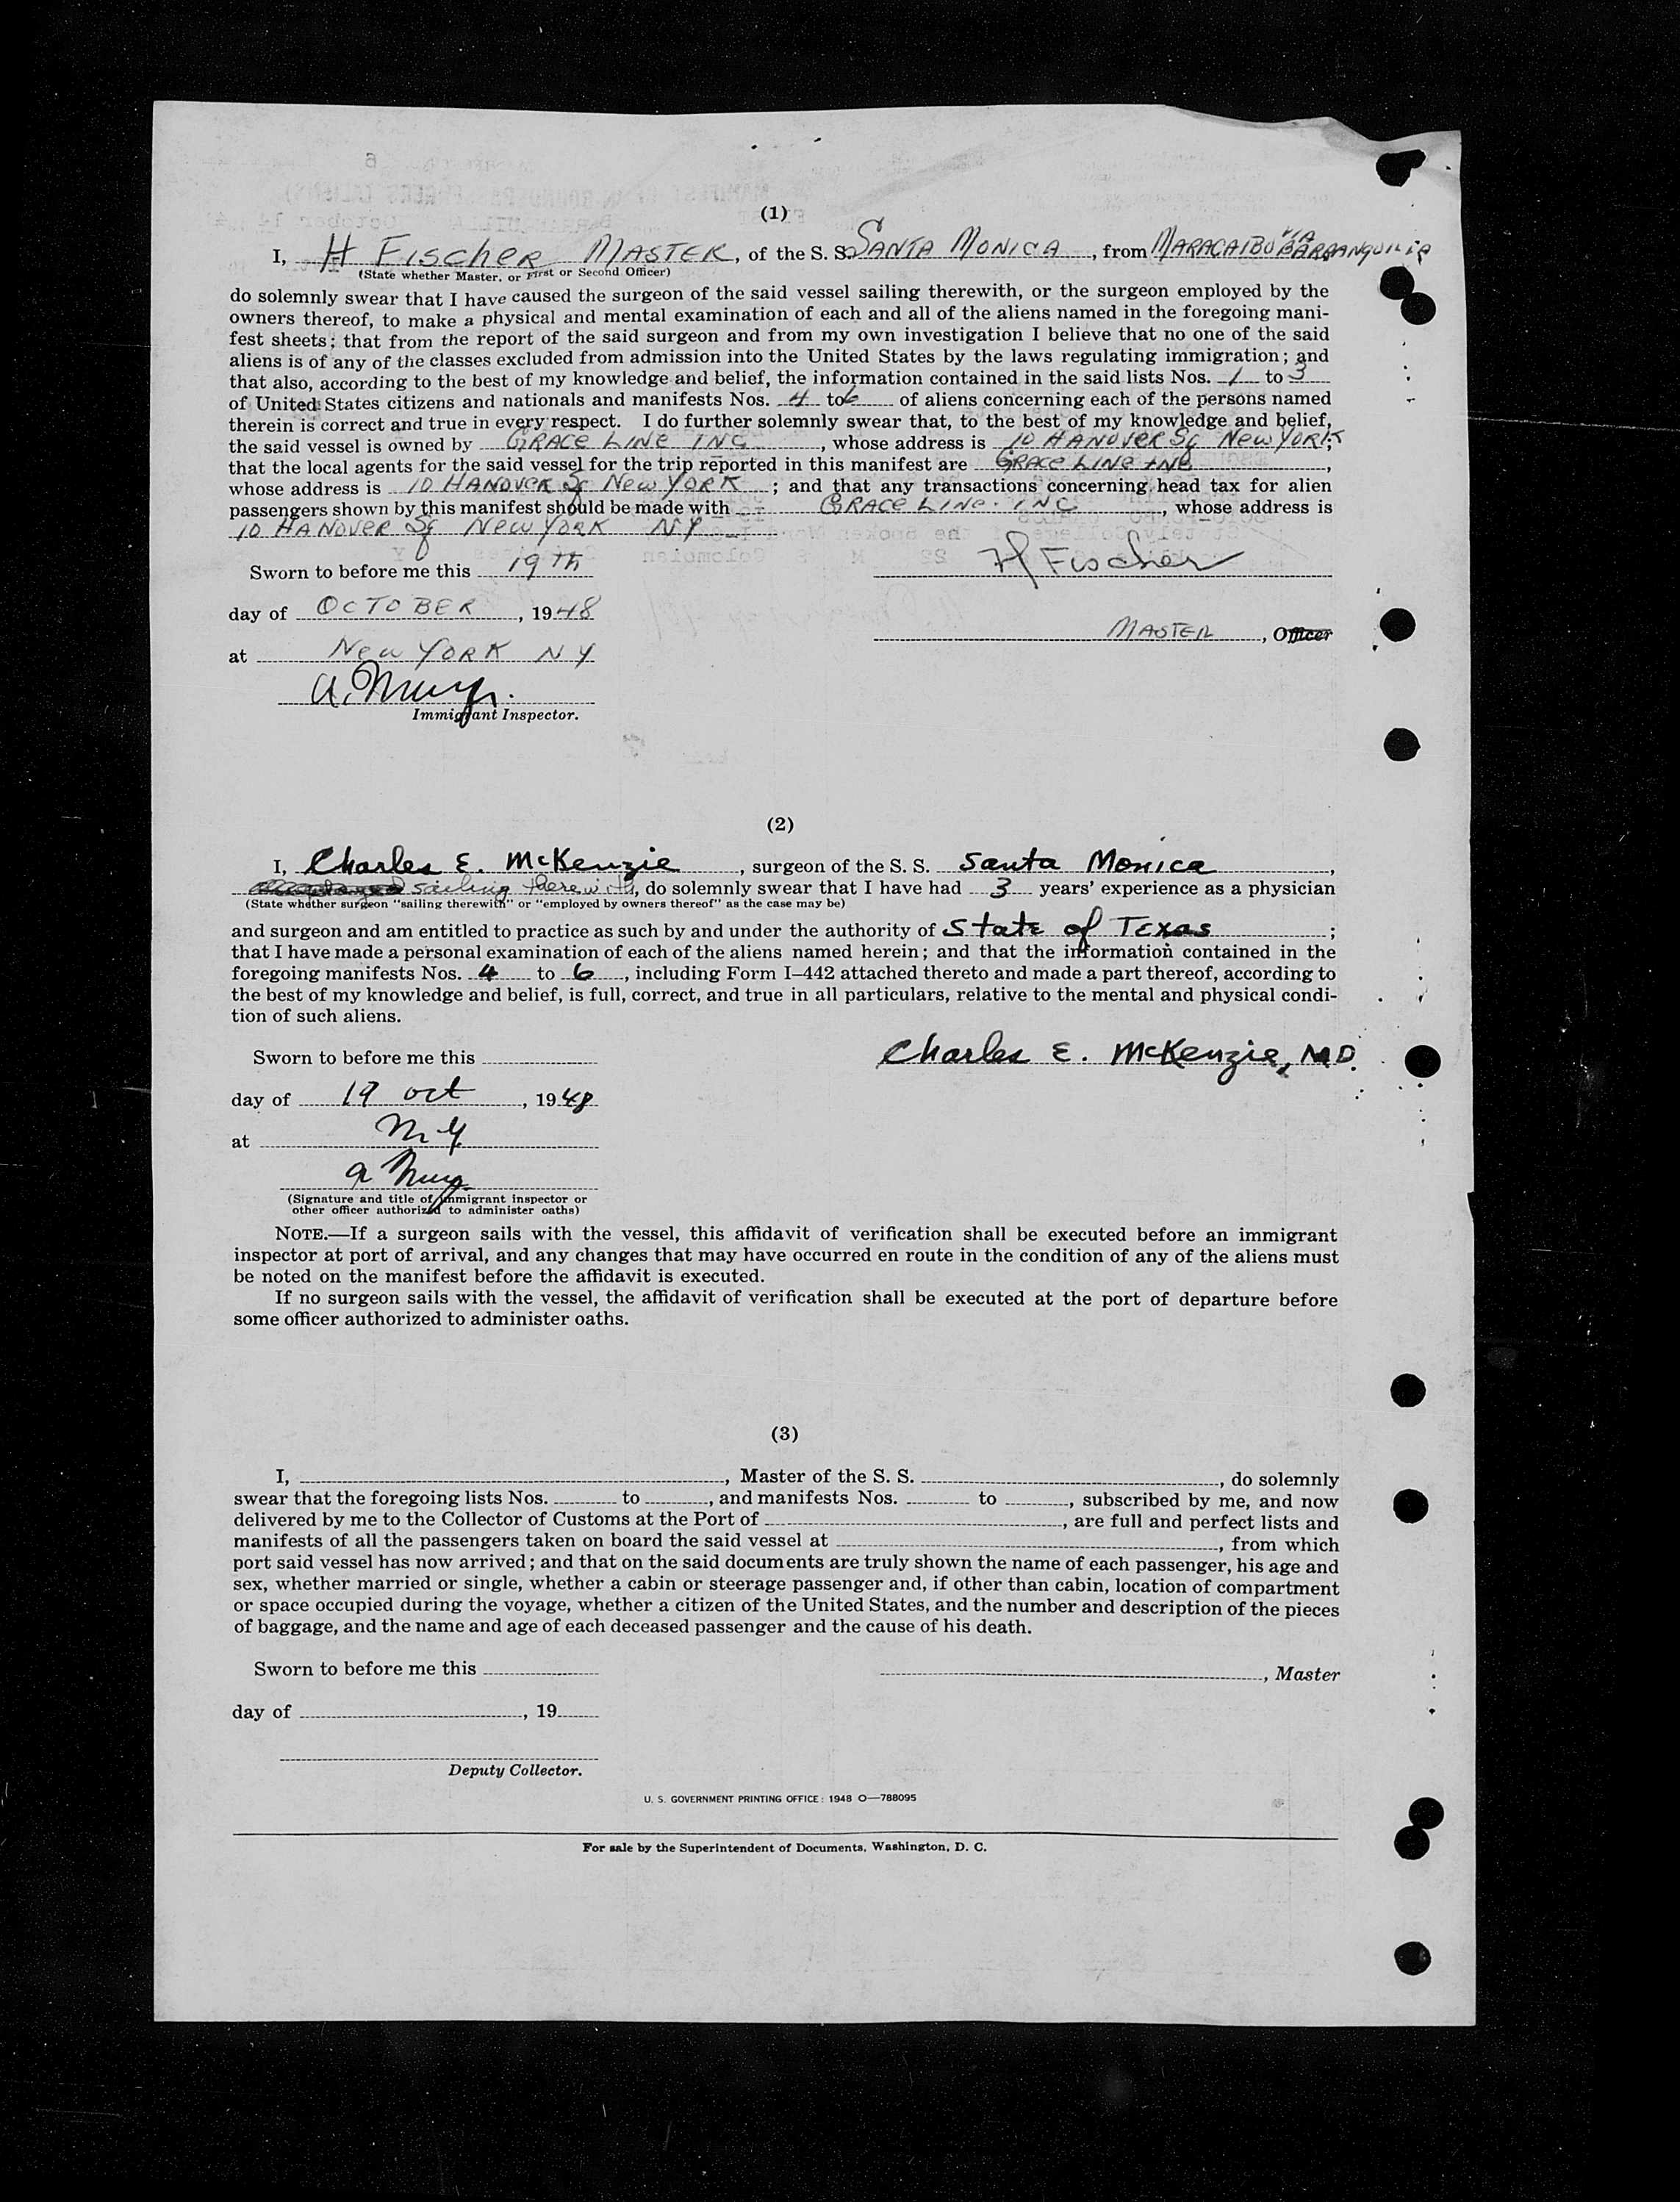 (1)
I, H Fischer MASTER, of the S. S. SANTA MONICA, from MARACAIBO VIA BARRANQUILLA
(State whether Master, or First or Second Officer)
do solemnly swear that I have caused the surgeon of the said vessel sailing therewith, or the surgeon employed by the
owners thereof, to make a physical and mental examination of each and all of the aliens named in the foregoing mani-
fest sheets; that from the report of the said surgeon and from my own investigation I believe that no one of the said
aliens is of any of the classes excluded from admission into the United States by the laws regulating immigration; and
that also, according to the best of my knowledge and belief, the information contained in the said lists Nos. 1 to 3
of United States citizens and nationals and manifests Nos. 4 to 6 of aliens concerning each of the persons named
therein is correct and true in every respect. I do further solemnly swear that, to the best of my knowledge and belief,
the said vessel is owned by GRACE LINE INC, whose address is 10 HANOVER Sq New York;
that the local agents for the said vessel for the trip reported in this manifest are GRACE LINE INC,
whose address is 10 HANOVER Sq New YORK; and that any transactions concerning head tax for alien
passengers shown by this manifest should be made with GRACE LINE. INC, whose address is
10 HANOVER Sq NEW YORK NY
Sworn to before me this 19th
H Fischer
day of OCTOBER, 1948
MASTER, Officer
at New YORK NY
Immigrant Inspector.
(2)
I, Charles E. McKenzie, surgeon of the S. S. Santa Monica,
sailing therewith, do solemnly swear that I have had 3 years' experience as a physician
(State whether surgeon "sailing therewith" or "employed by owners thereof" as the case may be)
and surgeon and am entitled to practice as such by and under the authority of State of Texas;
that I have made a personal examination of each of the aliens named herein; and that the information contained in the
foregoing manifests Nos. 4 to 6, including Form I–442 attached thereto and made a part thereof, according to
the best of my knowledge and belief, is full, correct, and true in all particulars, relative to the mental and physical condi-
tion of such aliens.
Sworn to before me this
Charles E. McKenzie, M.D.
day of 19 oct, 1948
at N.Y
(Signature and title of immigrant inspector or
other officer authorized to administer oaths)
NOTE.—If a surgeon sails with the vessel, this affidavit of verification shall be executed before an immigrant
inspector at port of arrival, and any changes that may have occurred en route in the condition of any of the aliens must
be noted on the manifest before the affidavit is executed.
If no surgeon sails with the vessel, the affidavit of verification shall be executed at the port of departure before
some officer authorized to administer oaths.
(3)
I, , Master of the S. S. , do solemnly
swear that the foregoing lists Nos. to , and manifests Nos. to , subscribed by me, and now
delivered by me to the Collector of Customs at the Port of , are full and perfect lists and
manifests of all the passengers taken on board the said vessel at , from which
port said vessel has now arrived; and that on the said documents are truly shown the name of each passenger, his age and
sex, whether married or single, whether a cabin or steerage passenger and, if other than cabin, location of compartment
or space occupied during the voyage, whether a citizen of the United States, and the number and description of the pieces
of baggage, and the name and age of each deceased passenger and the cause of his death.
Sworn to before me this
, Master
day of , 19
Deputy Collector.
U. S. GOVERNMENT PRINTING OFFICE : 1948 O—788095
For sale by the Superintendent of Documents, Washington, D. C.